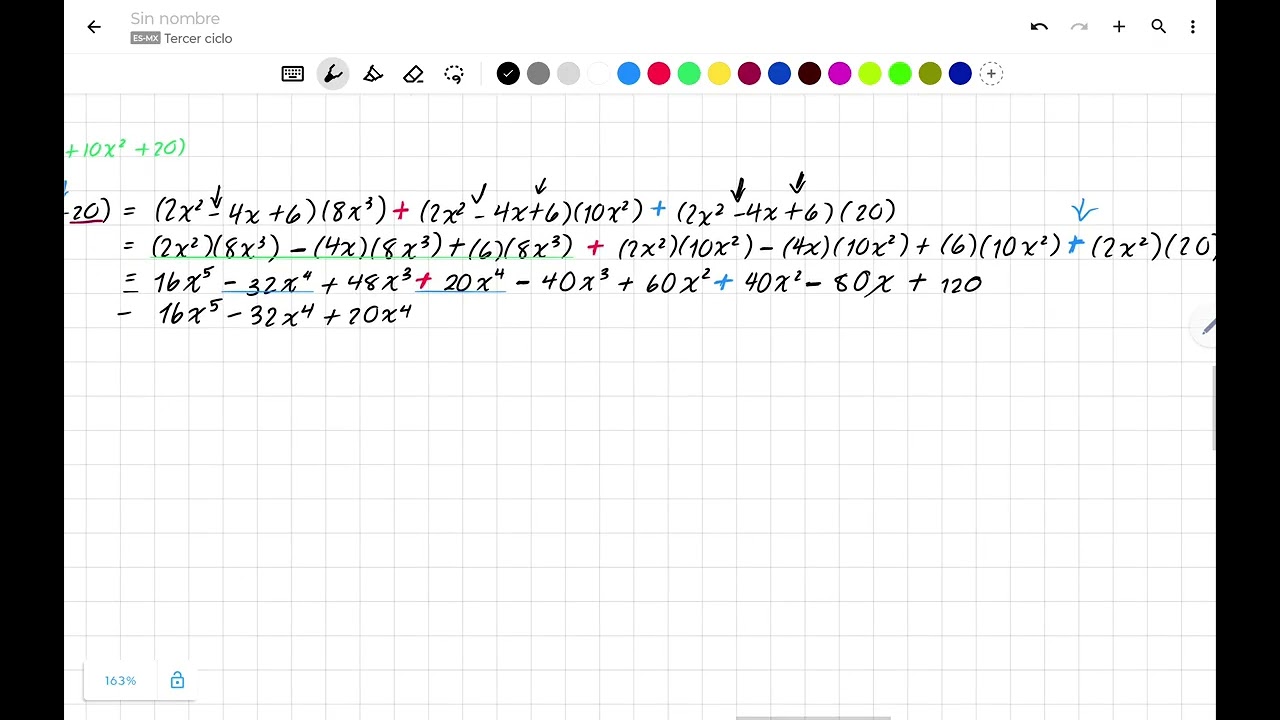 Sin nombre
ES-MX Tercer ciclo
+ 10x² + 20)
-20) = (2x² - 4x + 6)(8x³) + (2x² - 4x + 6)(10x²) + (2x² - 4x + 6)(20)
= (2x²)(8x³) - (4x)(8x³) + (6)(8x³) + (2x²)(10x²) - (4x)(10x²) + (6)(10x²) + (2x²)(20)
= 16x⁵ - 32x⁴ + 48x³ + 20x⁴ - 40x³ + 60x² + 40x² - 80x + 120
- 16x⁵ - 32x⁴ + 20x⁴
163%